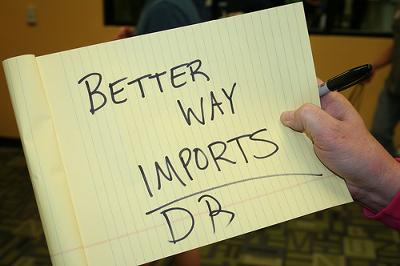 BETTER
WAY
IMPORTS
DR